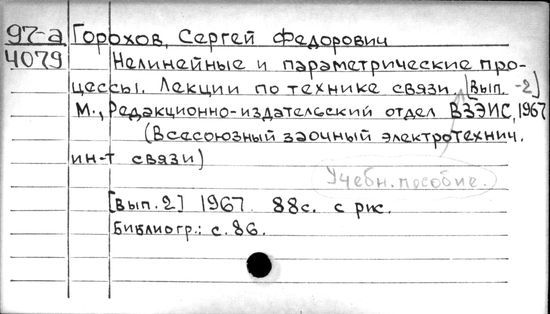 97-а Горохов, Сергей Федорович
4079 Нелинейные и параметрические про-
цессы. Лекции по технике связи. [Вып. -2]
М., Редакционно-издательский отдел ВЗЭИС, 1967
(Всесоюзный заочный электротехнич.
ин-т связи)
Учебн. пособие.
[Вып. 2] 1967. 88с. с рис.
Библиогр.: с. 86.